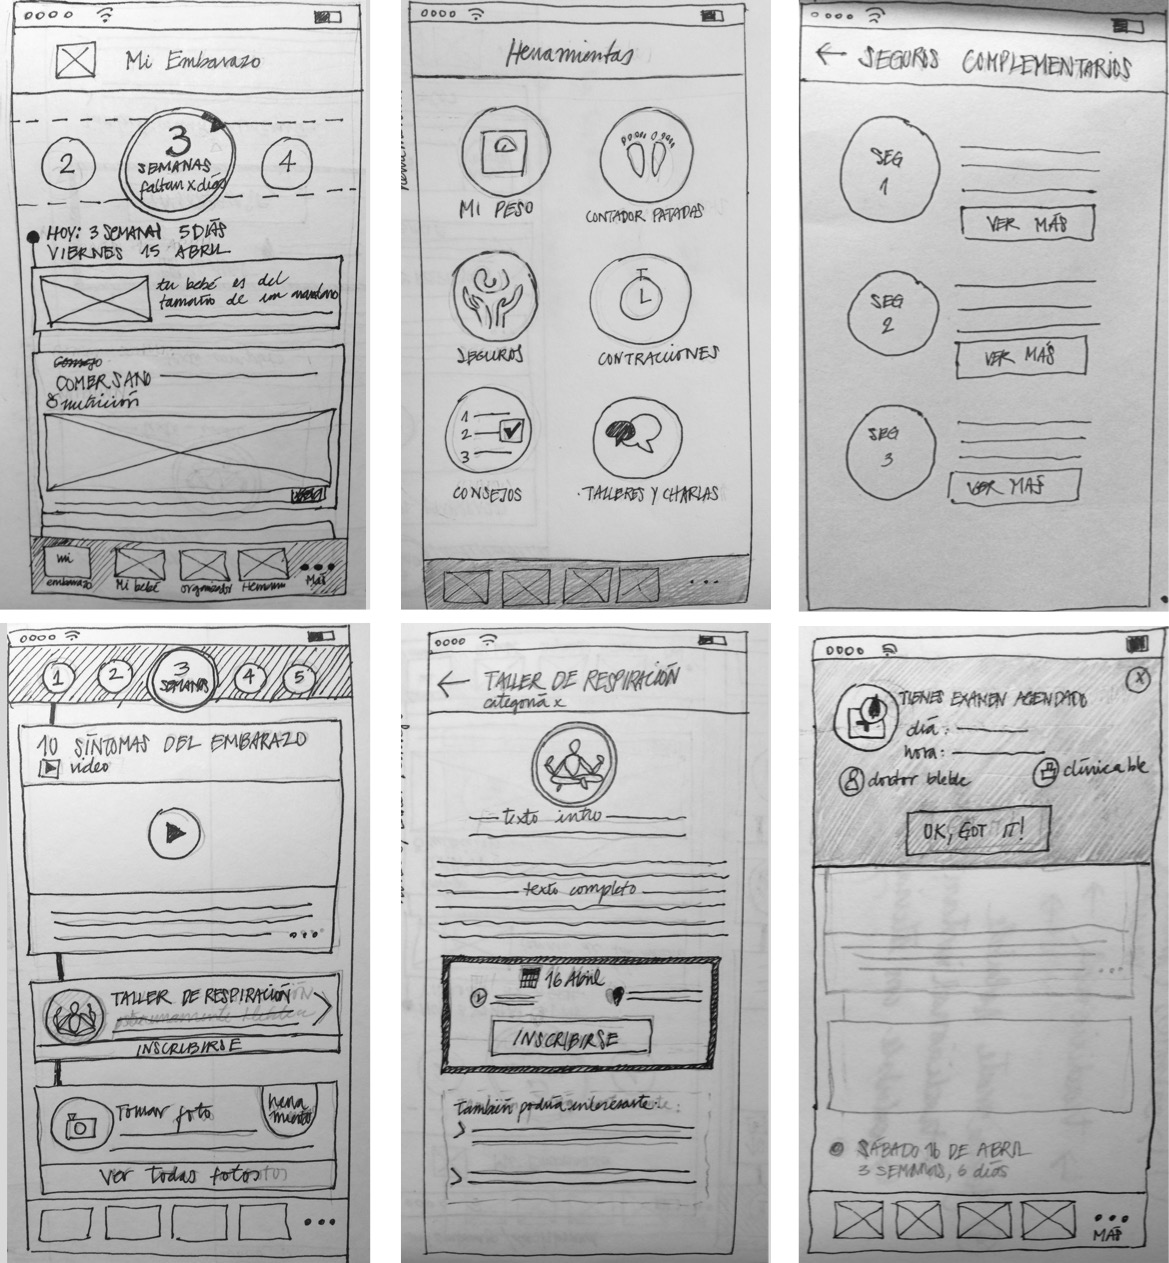 Mi Embarazo
2
3
SEMANAS
faltan x días
4
HOY: 3 SEMANAS 5 DÍAS
VIERNES 15 ABRIL
tu bebé es del
tamaño de un
Consejo
COMER SANO
& nutrición
mi
embarazo
Mi bebé
organizador
Herram
Más
Herramientas
MI PESO
CONTADOR PATADAS
SEGUROS
CONTRACCIONES
1
2
3
CONSEJOS
TALLERES Y CHARLAS
← SEGUROS COMPLEMENTARIOS
SEG
1
VER MÁS
SEG
2
VER MÁS
SEG
3
VER MAS
1
2
3
SEMANAS
4
5
10 SÍNTOMAS DEL EMBARAZO
video
TALLER DE RESPIRACIÓN
INSCRIBIRSE
Tomar foto
herra
mienta
Ver todas fotos
← TALLER DE RESPIRACIÓN
categoría x
texto intro
texto completo
16 Abril
INSCRIBIRSE
también podría interesarte:
X
TIENES EXAMEN AGENDADO
día:
hora:
doctor blebble
clínica ble
OK, GOT IT!
SÁBADO 16 DE ABRIL
3 SEMANAS, 6 días
MÁS